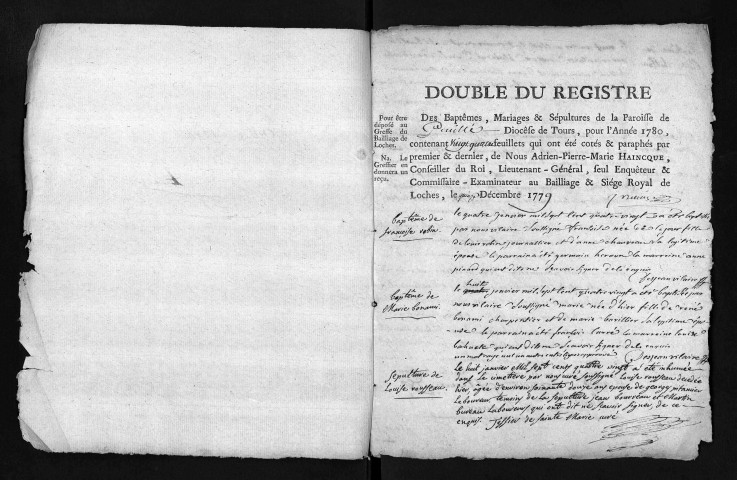 DOUBLE DU REGISTRE
Pour être
déposé au
Greffe du
Bailliage de
Loches.
Na. Le
Greffier en
donnera un
reçu.
DES Baptêmes, Mariages & Sépultures de la Paroisse de
Diocèse de Tours, pour l'Année 1780,
contenant vingt quatre feuillets qui ont été cotés & paraphés par
premier & dernier, de Nous Adrien-Pierre-Marie HAINCQUE,
Conseiller du Roi, Lieutenant-Général, seul Enquêteur &
Commissaire-Examinateur au Bailliage & Siége Royal de
Loches, le Décembre 1779
Baptême de
francoise robin
le quatre janvier mil sept cent quatre vingt a été baptisée
par nous vicaire soussigné francoise née de le jour fille
de louis robin journallier et d'anne chauveau sa legitime
épouse le parrain a été germain la marreine anne
pinard qui ont dit ne scavoir signer de ce enquis
Baptême de
Marie bonami
huit janvier mil sept cent quatre vingt a été baptisée par
nous vicaire soussigné marie née d'hier fille de rené
bonami charpentier et de marie barillier sa legitime épouse
le parrain a été françois la marreine louise
qui ont dit ne scavoir signer de ce enquis
sepulture de
Louise rousseau
le huit janvier mil sept cens quatre vingt a été inhumée
dans le cimetière par nous curé soussigné Louise rousseau decedée
hier, agée d'environ soixante douze ans epouse de george
laboureur temoins de la sepulture jean bourreau et Martin
bureau laboureurs qui ont dit ne scavoir signer, de ce
enquis. Tessier de Sainte Marie curé